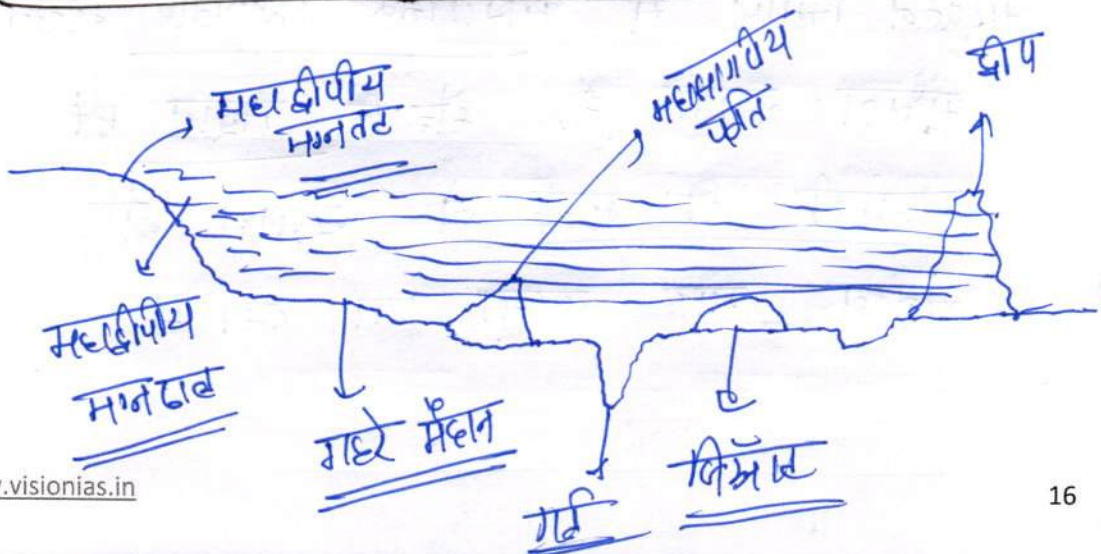 महाद्वीपीय
मग्नतट
महासागरीय
द्वीप
महाद्वीपीय
मग्न ढाल
गहरे मैदान
गर्त
www.visionias.in
16